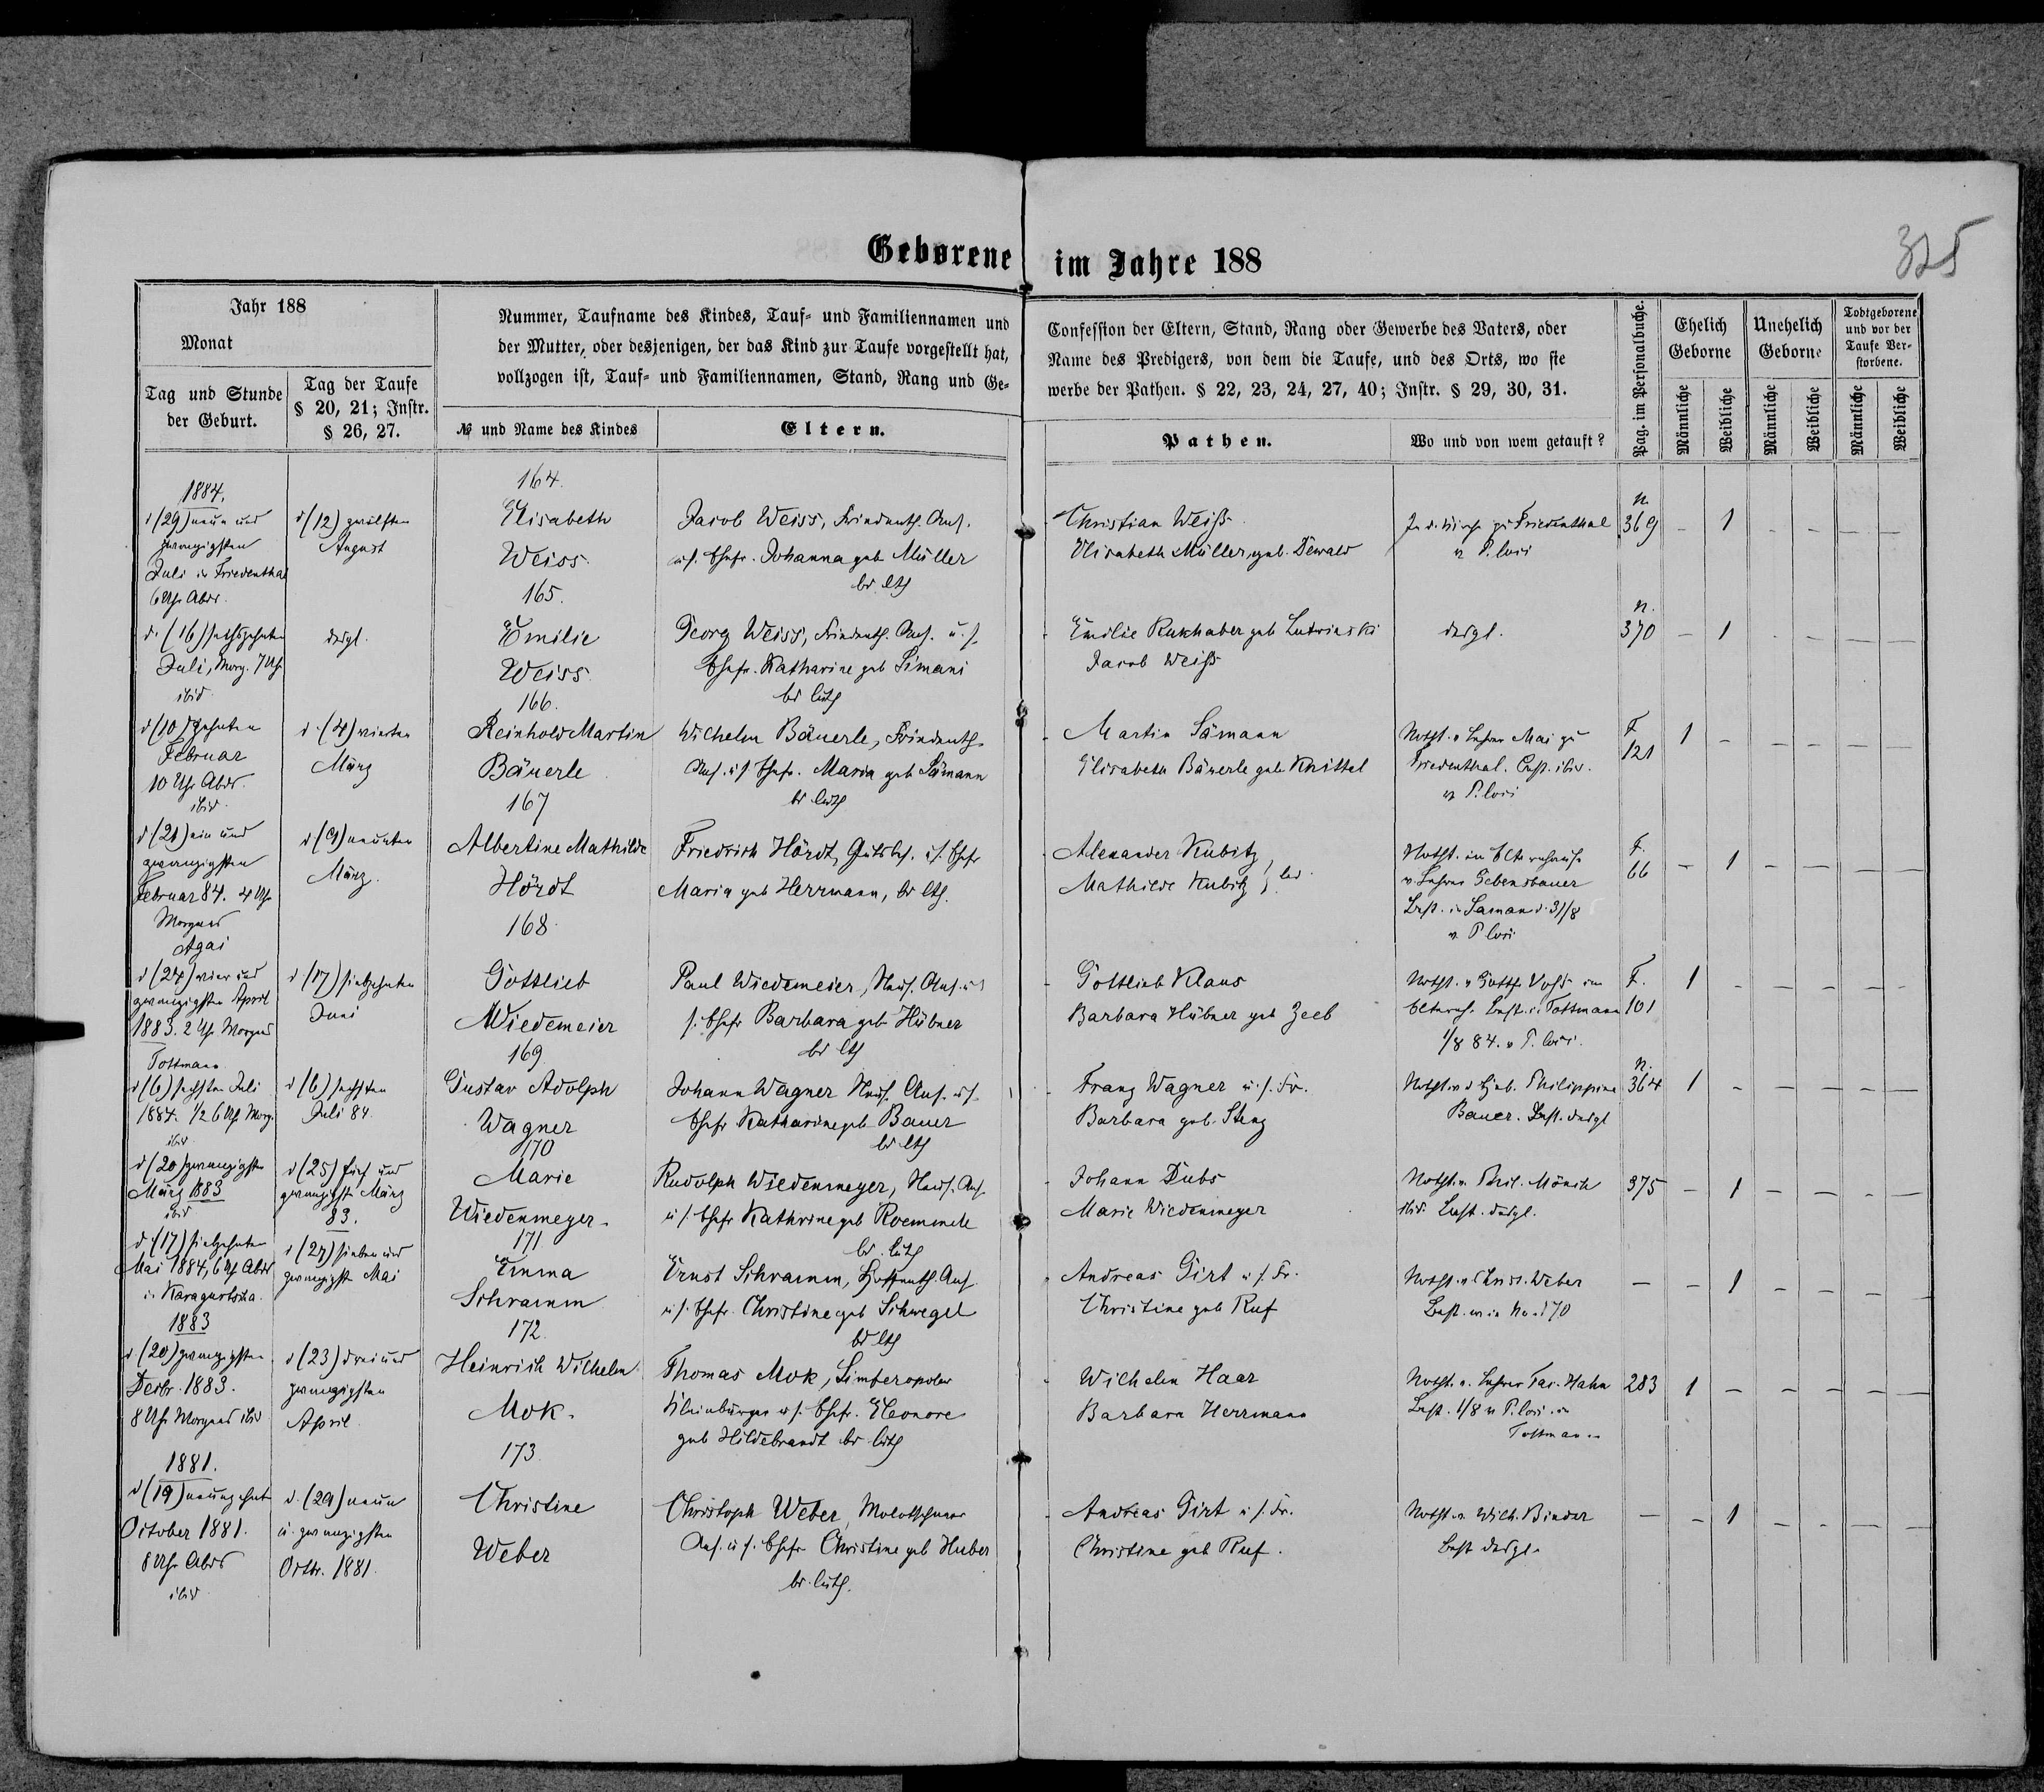 Geborene im Jahre 188
325
Jahr 188
Monat
Tag und Stunde
der Geburt.
Tag der Taufe
§ 20, 21; Instr.
§ 26, 27.
Nummer, Taufname des Kindes, Tauf- und Familiennamen und
der Mutter, oder desjenigen, der das Kind zur Taufe vorgestellt hat,
vollzogen ist, Tauf- und Familiennamen, Stand, Rang und Ge-
№ und Name des Kindes
Eltern.
Confession der Eltern, Stand, Rang oder Gewerbe des Vaters, oder
Name des Predigers, von dem die Taufe, und des Orts, wo sie
werbe der Pathen. § 22, 23, 24, 27, 40; Instr. § 29, 30, 31.
Pathen.
Wo und von wem getauft?
Pag. im Personalbuche.
Ehelich
Geborne
Unehelich
Geborne
Todtgeborene
und vor der
Taufe Ver-
storbene.
Männliche
Weibliche
Männliche
Weibliche
Männliche
Weibliche
1884.
d (29) neun und
zwanzigsten
Juli in Friedenthal
6 Uhr Abds.
d (12) zwölften
August
164.
Elisabeth
Weiss
Jacob Weiss, Friedenth. Ans.
u s. Ehefr. Johanna geb Müller
bd lth
Christian Weiß
Elisabeth Müller, geb. Dewald
In d. Kirche zu Friedenthal
v P. loci
n.
369 – 1 – – – –
d. (16) sechszehnten
Juli, Morg. 7 Uhr
ibid
desgl.
165.
Emilie
Weiss
Georg Weiss, Friedenth. Ans. u. s.
Ehefr. Katharine geb Simani
bd luth
Emilie Rukhaber geb Lutvinski
Jacob Weiß
desgl.
n.
370 – 1 – – – –
d (10) zehnten
Februar
10 Uhr Abds.
ibid.
d. (4) vierten
März
166.
Reinhold Martin
Bäuerle
Wilhelm Bäuerle, Friedenth.
Ans. u s Ehefr. Maria geb Sämann
bd luth
Martin Sämann
Elisabeth Bäuerle geb Knittel
Notht. v Lehrer Mai zu
Friedenthal. Best. ibid.
v P. loci
F
121 1 – – – – –
d (21) ein und
zwanzigsten
Februar 84. 4 Uhr
Morgens
Agai
d (9) neunten
März.
167
Albertine Mathilde
Hördt
Friedrich Hördt, Gutsbes. u s. Ehefr
Maria geb Herrmann, bd lth.
Alexander Kubitz
Mathilde Kubitz } led.
Notht. im Elternhause
v. Lehrer Gebensbauer
Best. in Saman d. 31/8
v. P loci
F.
66 – 1 – – – –
d (24) vier und
zwanzigsten April
1883. 2 Uhr Morgens
Tottmann
d (17) siebzehnten
Juni
168.
Gottlieb
Wiedemeier
Paul Wiedemeier, Neus. Ans. u
s. Ehefr Barbara geb Hübner
bd lth
Gottlieb Klaus
Barbara Hübner geb Zeeb
Notht. v Gottfr. Voß im
Elternh. Best. in Tottmann
1/8 84. v P. loci.
F.
101 1 – – – – –
d (6) sechsten Juli
1884. 1/2 6 Uhr Morg.
ibid
d (6) sechsten
Juli 84
169.
Gustav Adolph
Wagner
Johann Wagner Neus. Ans. u s
Ehefr Katharine geb Bauer
bd lth
Franz Wagner u. s. Fr.
Barbara geb. Steng
Notht. v d Heb. Philippine
Bauer. Best. desgl
n.
364 1 – – – – –
d (20) zwanzigsten
März 1883
ibid
d (25) fünf und
zwanzigste März
83.
170
Marie
Wiedenmeyer.
Rudolph Wiedenmeyer, Neus. Ans
u s. Ehefr Kathrine geb Roemmele
bd. luth
Johann Dubs
Marie Wiedenmeyer
Notht. v. Phil. Mönch
ibid. Best. desgl.
375 – 1 – – – –
d (17) siebzehnten
Mai 1884, 6 Uhr Abds
in Karagurtscha.
d (27) sieben und
zwanzigste Mai
171
Emma
Schramm
Ernst Schramm, Hoffnth. Ans.
u s. Ehefr. Christine geb Schwegel
bd lth
Andreas Girt u s. Fr.
Christine geb Ruf
Notht. v. Christ. Weber
Best. w in No 170
– – 1 – – – –
1883
d. (20) zwanzigsten
Decbr. 1883.
8 Uhr Morgens ibid
d (23) drei und
zwanzigsten
April
172.
Heinrich Wilhelm
Mok.
Thomas Mok, Simferopoler
Kleinbürger u s. Ehefr. Eleonore
geb Hildebrandt bd luth
Wilhelm Haar
Barbara Herrmann
Notht. v. Lehrer Jac. Hahn
Best. 1/8 v P. loci in
Tottmann
283 1 – – – – –
1881.
d (19) neunzehnt
October 1881.
8 Uhr Abds
ibid
d. (29) neun
u. zwanzigsten
Octbr. 1881.
173
Christine
Weber
Christoph Weber, Molotschnaer
Ans. u s. Ehefr Christine geb Huber
bd. luth.
Andreas Girt u s. Fr.
Christine geb Ruf.
Notht. v. Wilh. Binder
Best desgl.
– – 1 – – – –